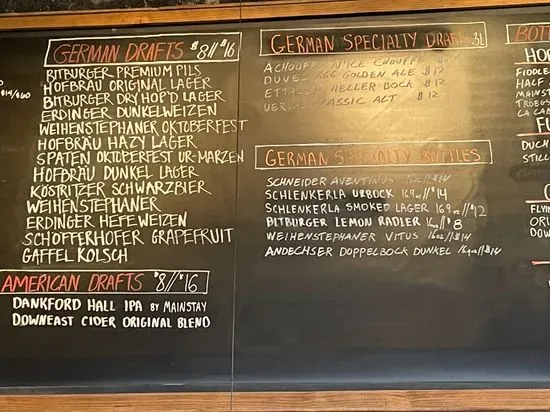 GERMAN DRAFTS $8//$16
BITBURGER PREMIUM PILS
HOFBRÄU ORIGINAL LAGER
BITBURGER DRY HOP'D LAGER
ERDINGER DUNKELWEIZEN
WEIHENSTEPHANER OKTOBERFEST
HOFBRÄU HAZY LAGER
SPATEN OKTOBERFEST UR-MARZEN
HOFBRÄU DUNKEL LAGER
KOSTRITZER SCHWARZBIER
WEIHENSTEPHANER
ERDINGER HEFEWEIZEN
SCHOFFERHOFER GRAPEFRUIT
GAFFEL KOLSCH
AMERICAN DRAFTS $8//$16
DANKFORD HALL IPA BY MAINSTAY
DOWNEAST CIDER ORIGINAL BLEND
GERMAN SPECIALTY DRAFTS .3L
ACHOUFFE N'ICE CHOUFFE $12
DUVEL 666 GOLDEN ALE $12
ETTALER HELLER BOCK $12
CLASSIC ALT $12
GERMAN SPECIALTY BOTTLES
SCHNEIDER AVENTINUS 16oz//$14
SCHLENKERLA URBOCK 16.9oz//$14
SCHLENKERLA SMOKED LAGER 16.9oz//$12
BITBURGER LEMON RADLER 16oz//$8
WEIHENSTEPHANER VITUS 16oz//$14
ANDECHSER DOPPELBOCK DUNKEL 16.9oz//$14
BOT
HO
FIDDLE
HALF
MAINST
TROEGS
LA LAB
DUCH
STILL
FLYIN
ORI
DOW